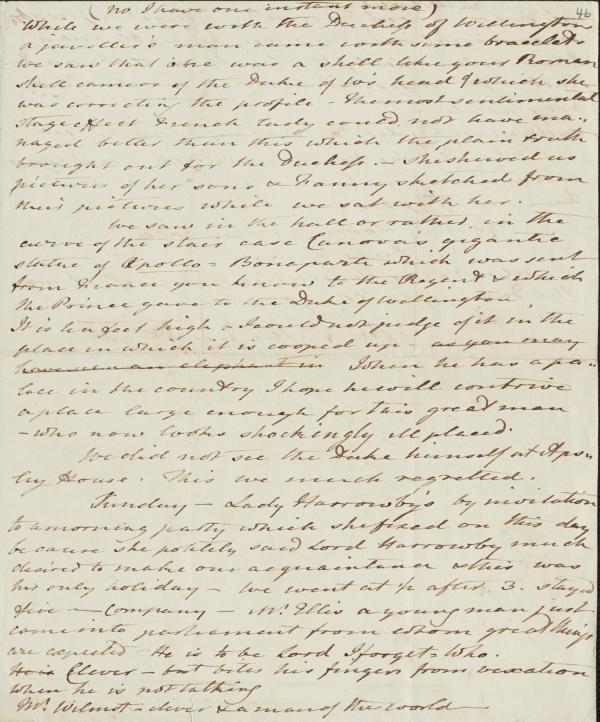 46
(no I have one instant more)
While we were with the Duchess of Wellington
a jeweller's man came with some bracelets
we saw that one was a shell like your Roman
shell cameos of the Duke of W's head of which she
was correcting the profile. The most sentimental
stage effect French lady could not have ma-
naged better than this which the plain truth
brought out for the Duchess. – She shewed us
pictures of her sons & Fanny sketched from
their pictures while we sat with her.
We saw in the hall or rather in the
curve of the stair case Canova's gigantic
statue of Apollo-Bonaparte which was sent
from France you know to the Regent & which
the Prince gave to the Duke of Wellington.
It is ten feet high – I could not judge of it in the
place in which it is cooped up – as you may
have seen an elephant in When he has a pa-
lace in the country I hope he will contrive
a place large enough for this great man
– who now looks shockingly ill placed.
We did not see the Duke himself at Aps-
ley House. This we much regretted.
Sunday – Lady Harrowby's by invitation
to a morning party which she fixed on this day
because she politely said Lord Harrowby much
desired to make our acquaintance & this was
his only holiday – We went at ½ after 3. stayed
five – Company – Mr. Ellis a young man just
come into parliament from whom great things
are expected – He is to be Lord I forget who.
He is Clever – but bites his fingers from vexation
when he is not talking
Mr. Wilmot – clever & a man of the world –